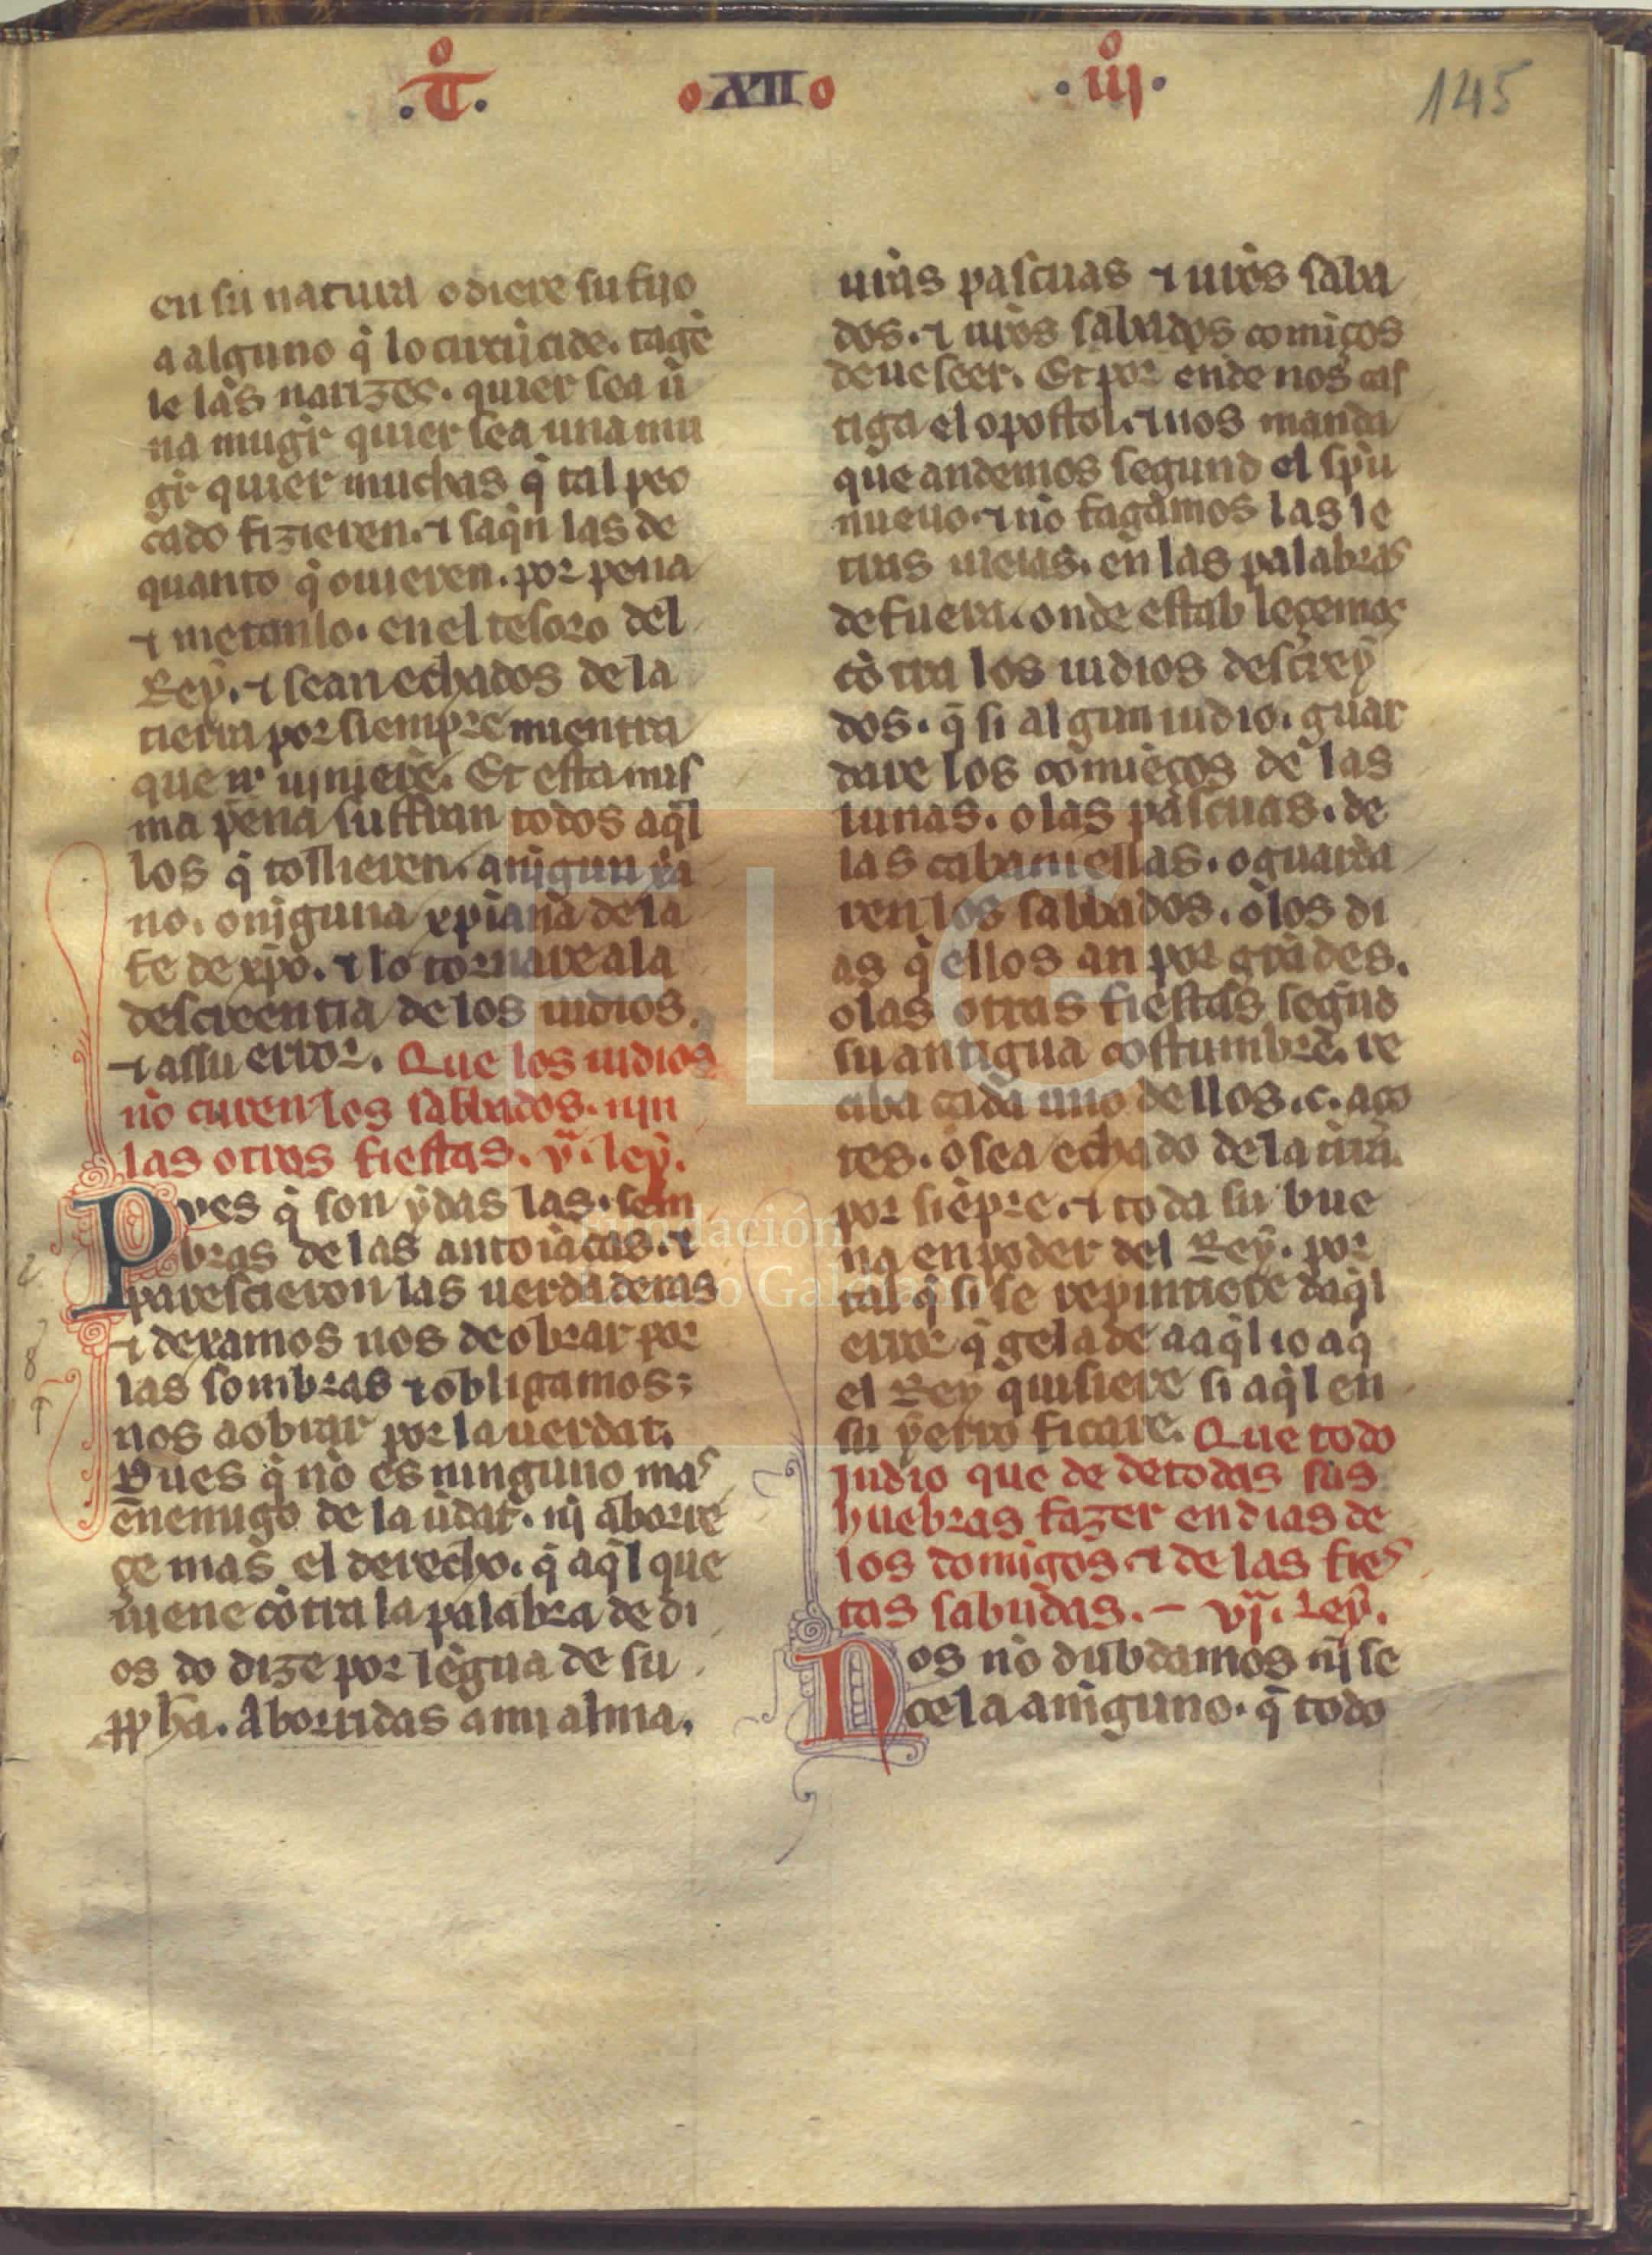 .t̊. XII .iij̊.
145
en su natura o diere su fijo
a alguno q̄ lo circūcide. tagē
le las narizes. quier sea ū
na mugr̄ quier sea una mu
gr̄ quier muchas q̄ tal pec
cado fizieren. ⁊ saq̄n las de
quanto q̄ ouieren. por pena
⁊ metanlo. en el tesoro del
Rey. ⁊ sean echados de la
tierra por siempre mientra
que
ma pena suffran todos aq̄l
los q̄ tollieren. a nīgun xīa
no. o nīguna xp̄iana de la
fe de xp̄o. ⁊ lo tornare a la
descreentia de los iudios.
⁊ assu error. Que los iudios
nō curen los sabbados. nin
las otras fiestas. v.ª ley.
Pves q̄ son ydas las. som
bras de las antoiāças. ⁊
parescieron las uerdaderas
⁊ dexamos nos de obrar por
las sombras ⁊ obligamos
nos a obrar por la uerdat.
Pues q̄ nō es ninguno mas
ēnemigo de la ūdat. nj̄ aborre
çe mas el derecho. q̄ aq̄l que
uiene cōtra la palabra de di
os do dize por lēgua de su
ꝓpha. Aborridas a mi alma.
ur̄as pascuas ⁊ ur̄os saba
dos. ⁊ ur̄os sabados comīços
de ueseer. Et por ende nos cas
tiga el opostol. ⁊ nos manda
que andemos segund el sp̄u
nueuo. ⁊ nō fagamos las le
tras uieias. en las palabras
de fuera. onde establecemos
cōtra los iudios descrey
dos. q̄ si algun iudio. guar
dare los comiēços de las
lunas. o las pascuas. de
las cabaniellas. o guarda
ren los sabbados. o los di
as q̄ ellos an por grādes.
o las otras fiestas segūd
su antigua costumbre. re
ciba cada uno dellos .c. aço
tes. o sea echado de la tr̄ra.
por siēpre. ⁊ toda su bue
na en poder del Rey. por
tal q̄ si se repintiere daq̄l
error q̄ gela de a aq̄l o a q̄
el Rey quisiere si aq̄l en
su yerro ficare. Que todo
Judio que de de todas sus
huebras fazer en dias de
los domīgos. ⁊ de las fies
tas sabudas. vj.ª Ley.
Nos nō dubdamos nj̄ se
cela a nīguno. q̄ todo
FLG
Fundación
Lázaro Galdiano